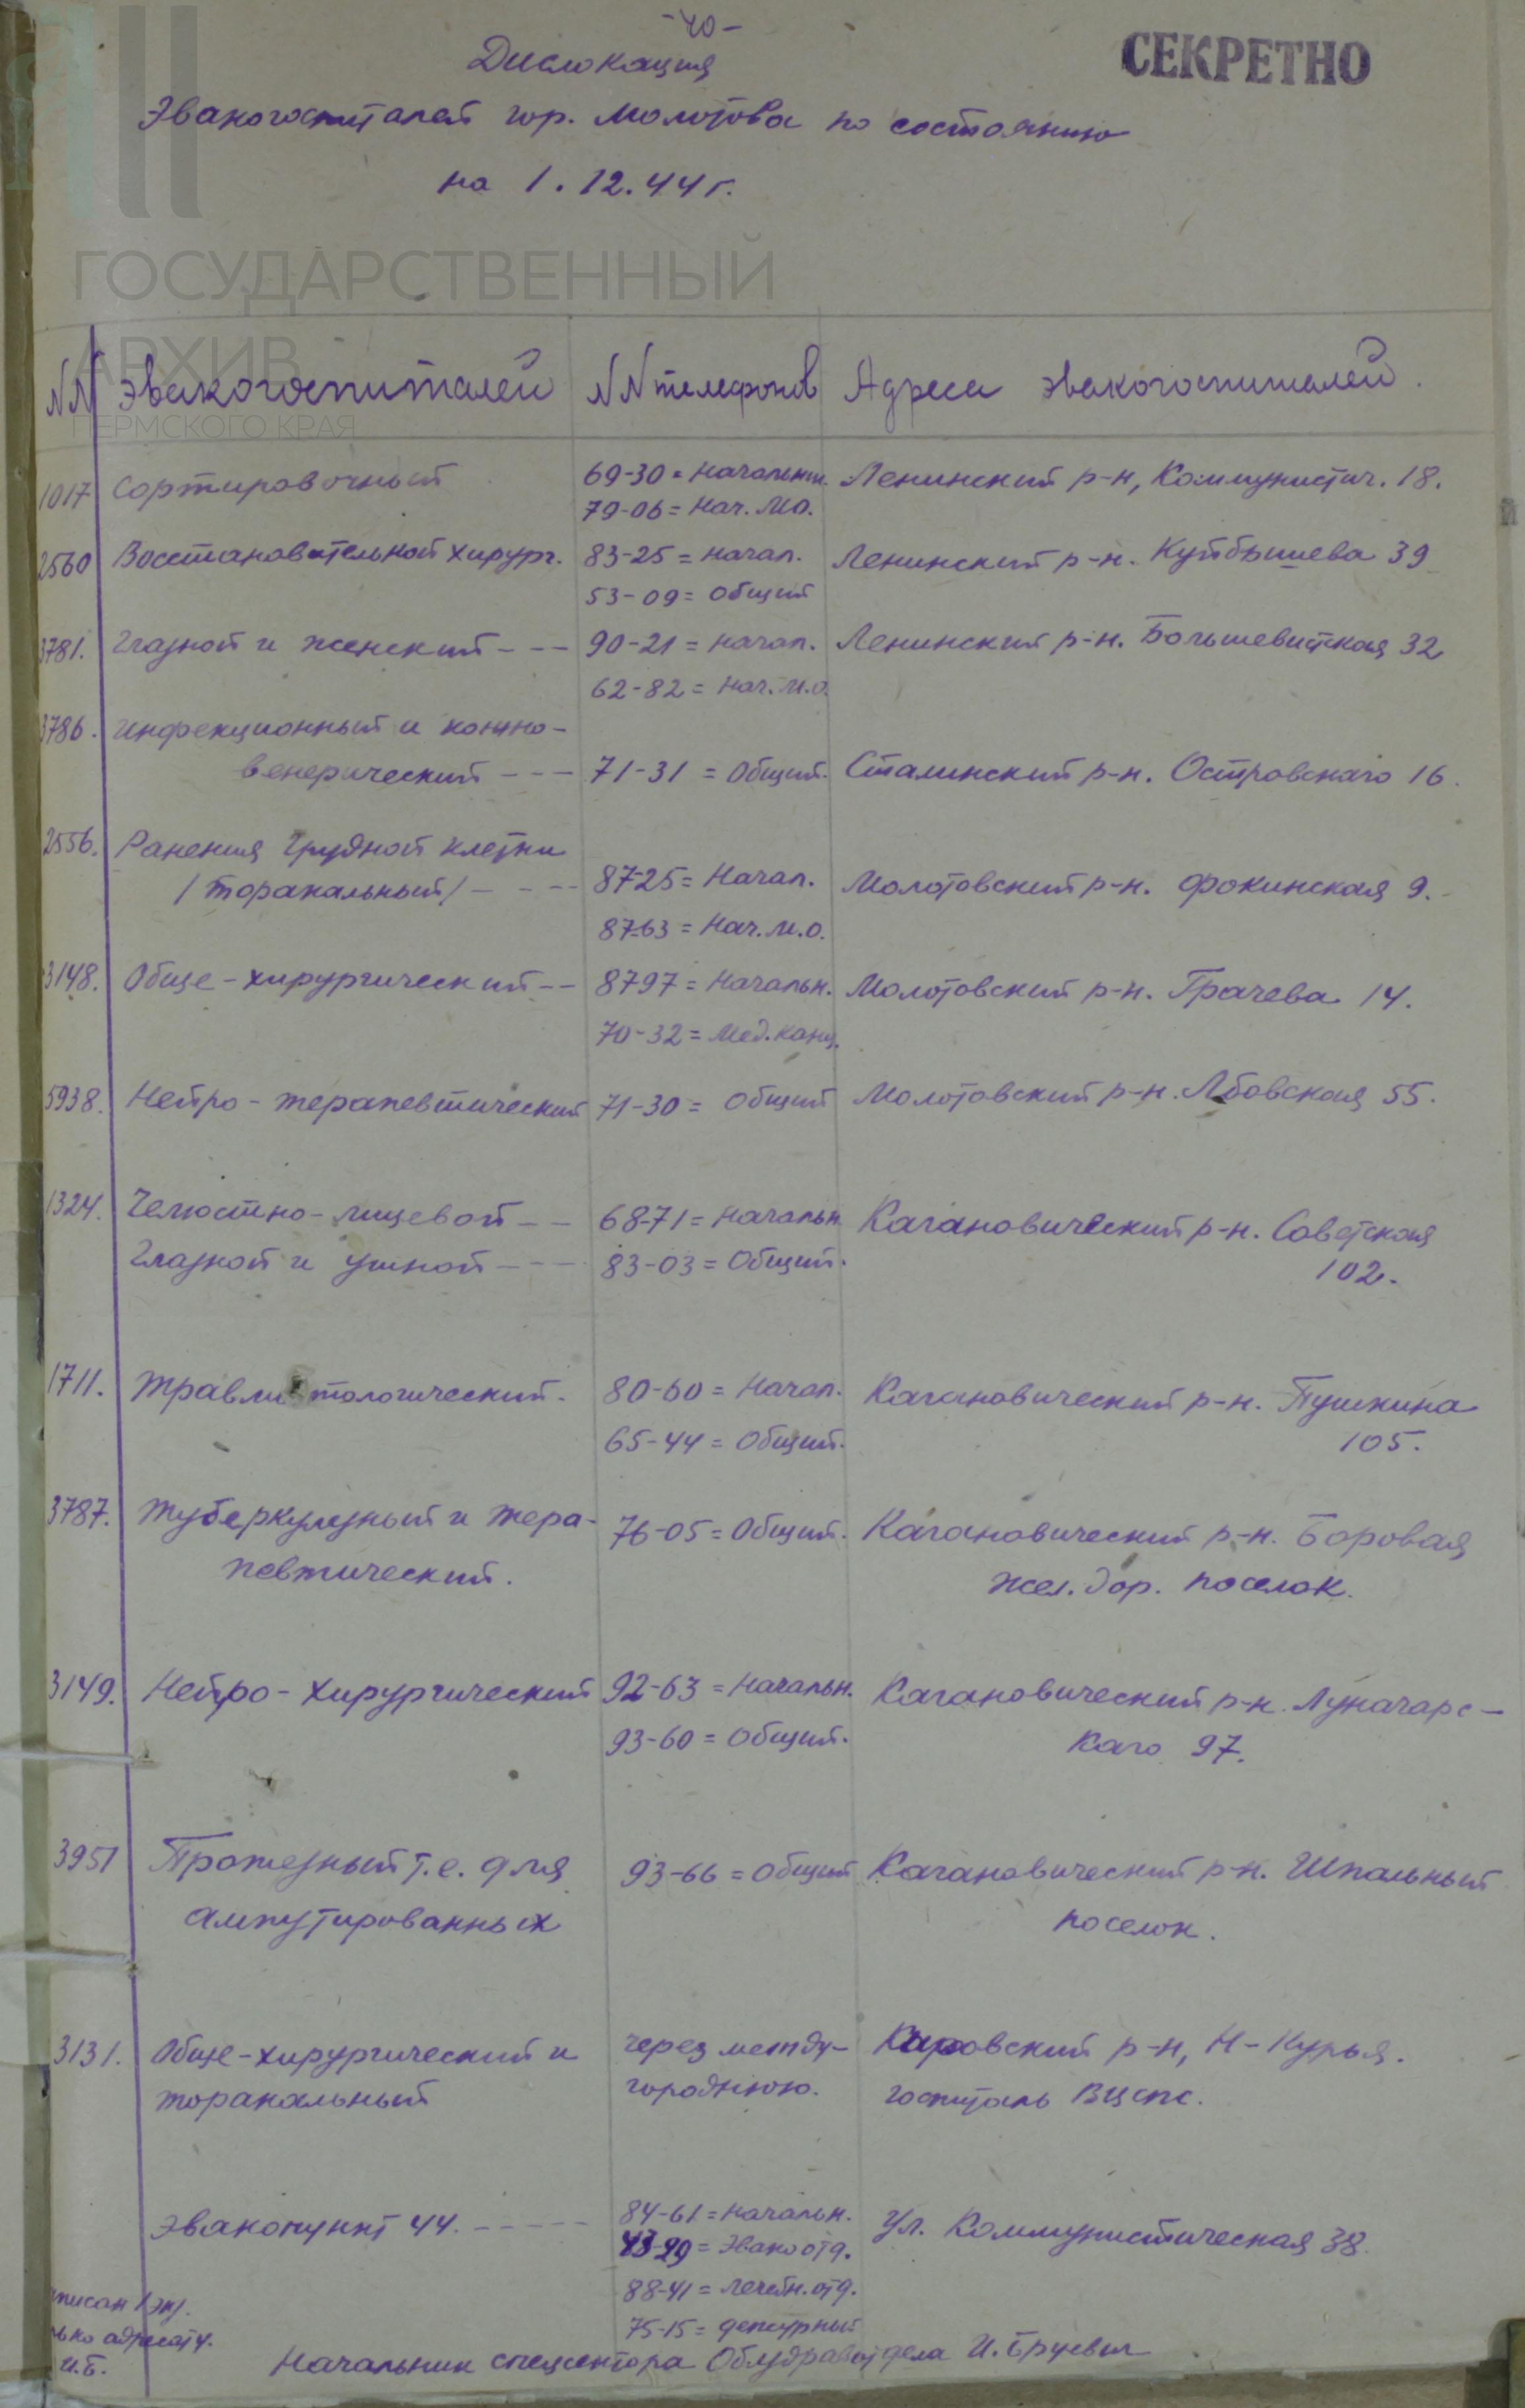 -40-
СЕКРЕТНО
Дислокация
Эвакогоспиталей гор. Молотова по состоянию
на 1.12.44 г.
ГОСУДАРСТВЕННЫЙ
АРХИВ
ПЕРМСКОГО КРАЯ
NN Эвакогоспиталей NN телефонов Адреса эвакогоспиталей.
1017 Сортировочный 69-30 = Начальник. Ленинский р-н, Коммунистич. 18.
79-06 = Нач. МО.
2560 Восстановительной хирург. 83-25 = Начал. Ленинский р-н. Куйбышева 39
53-09 = Общий
3781. Глазной и женский --- 90-21 = Начал. Ленинский р-н. Большевистская 32
62-82 = Нач. М.О.
3786. Инфекционный и кожно-
венерический --- 71-31 = Общий. Сталинский р-н. Островского 16.
2556. Ранения грудной клетки
/торакальный/ ---- 87-25 = Начал. Молотовский р-н. Фокинская 9.
87-63 = Нач. М.О.
3148. Обще-хирургический -- 87-97 = Начальн. Молотовский р-н. Грачева 14.
70-32 = Мед. канц.
5938. Нейро-терапевтический 71-30 = Общий Молотовский р-н. Лбовская 55.
1324. Челюстно-лицевой -- 68-71 = Начальн. Кагановический р-н. Советская
Глазной и ушной --- 83-03 = Общий. 102.
1711. Травматологический. 80-60 = Начал. Кагановический р-н. Пушкина
65-44 = Общий. 105.
3787. Туберкулезный и тера- 76-05 = Общий. Кагановический р-н. Боровая
певтический. жел. дор. поселок.
3149. Нейро-хирургический 92-63 = Начальн. Кагановический р-н. Луначарс-
93-60 = Общий. каго 97.
3951 Протезный т.е. для 93-66 = Общий Кагановический р-н. Шпальный
ампутированных поселок.
3131. Обще-хирургический и через между- Кировский р-н, Н-Курья.
торакальный городнюю. госпиталь ВЦСПС.
Эвакопункт 44. ----- 84-61 = Начальн. Ул. Коммунистическая 38.
43-29 = Эвакоотд.
88-41 = лечебн. отд.
75-15 = дежурный
писан 1 экз.
ько адресату.
И.Б.
Начальник спецсектора Облздравотдела И. Бруевич